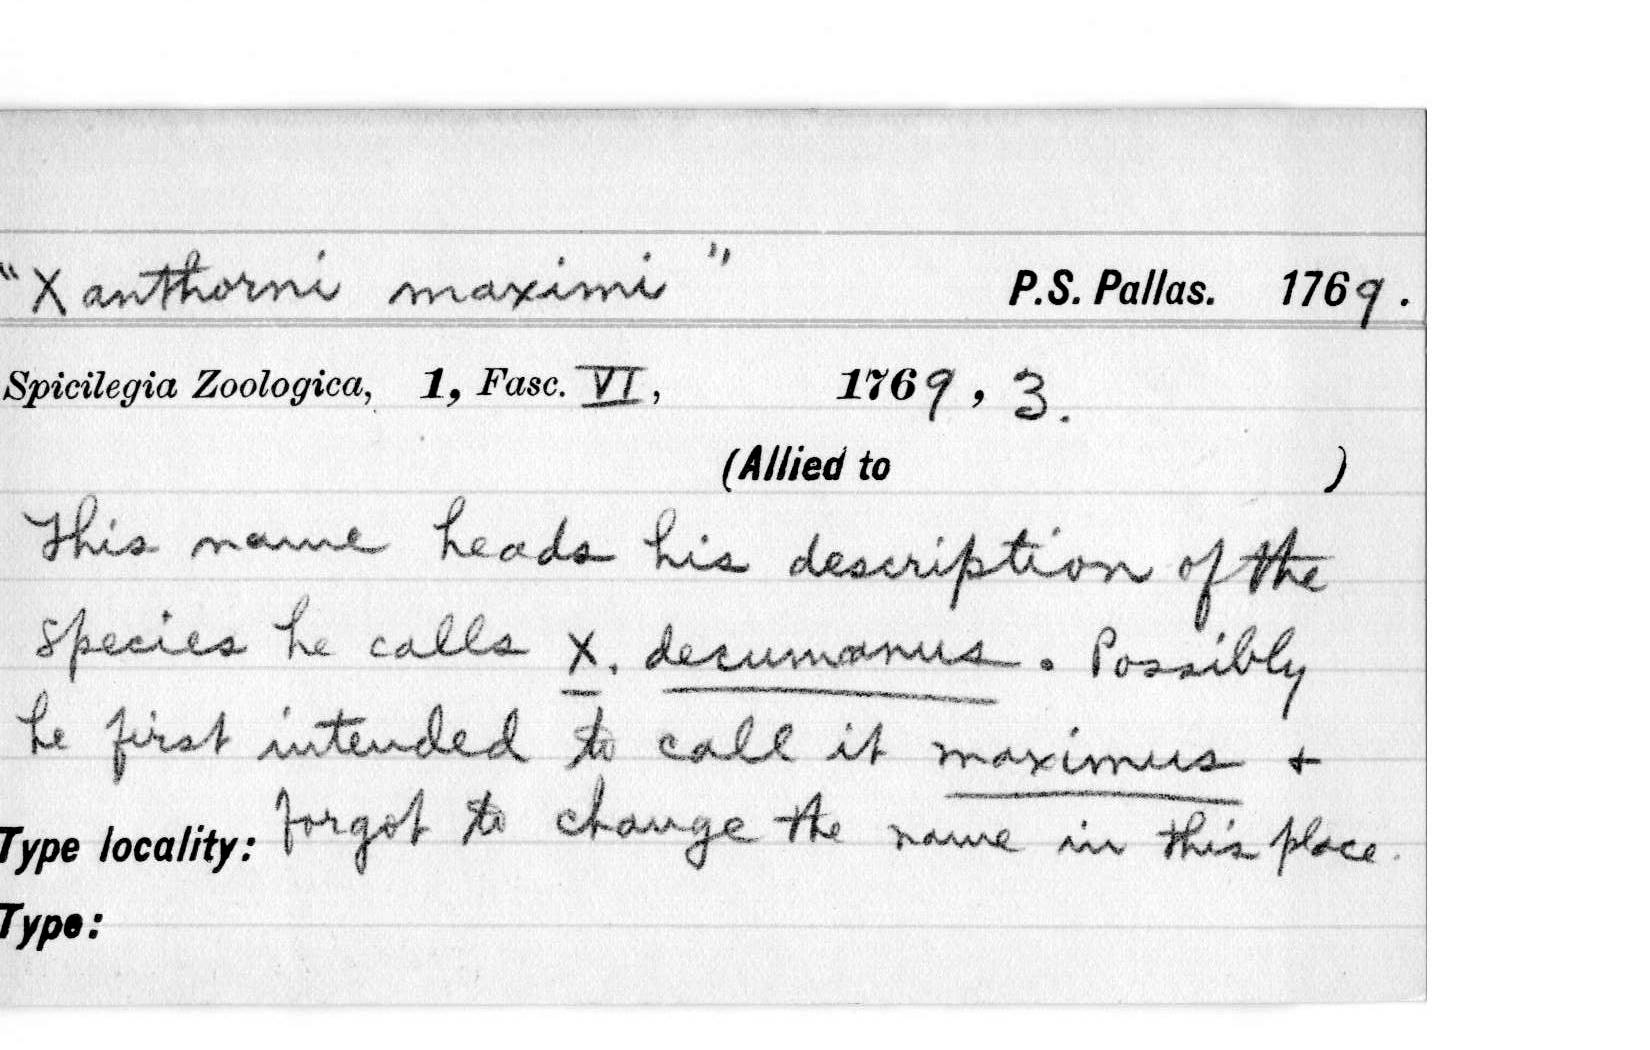 "Xanthorni maximi" P.S. Pallas. 1769.
Spicilegia Zoologica, 1, Fasc. VI, 1769, 3.
(Allied to )
This name heads his description of the
species he calls X. decumanus. Possibly
he first intended to call it maximus +
Type locality: forgot to change the name in this place.
Type: